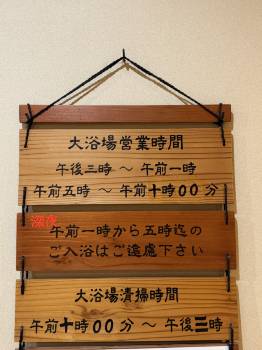 大浴場営業時間
午後三時 ～ 午前一時
午前五時 ～ 午前十時００分
深夜
午前一時から五時迄の
ご入浴はご遠慮下さい
大浴場清掃時間
午前十時００分 ～ 午後三時